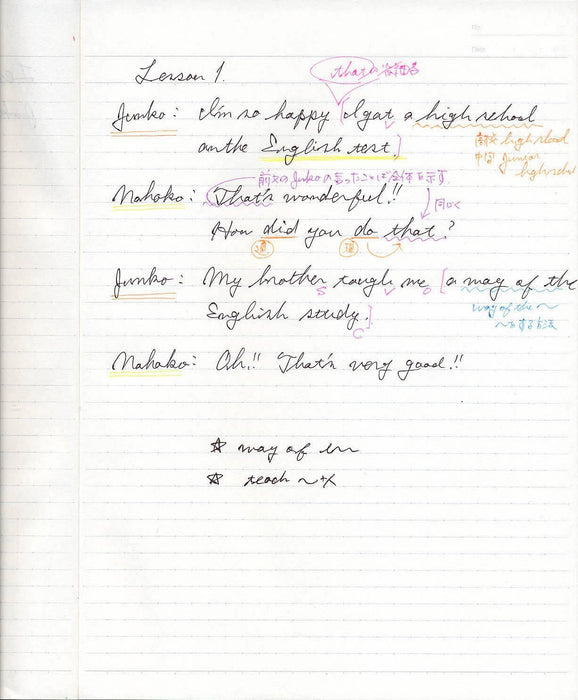 Lesson 1.
thatの省略
Junko: I'm so happy [I got a high school
on the English test.]
高校 high school
中学 junior
high school
前文のJunkoの言ったことば全体を示す
Nahoko: That's wonderful!!
同じく
How did you do that?
過
Junko: My brother taugh me [a way of the
S V O
English study.]
C
way of the ~
~する方法
Nahoko: Oh!! That's very good!!
☆ way of
☆ teach ~